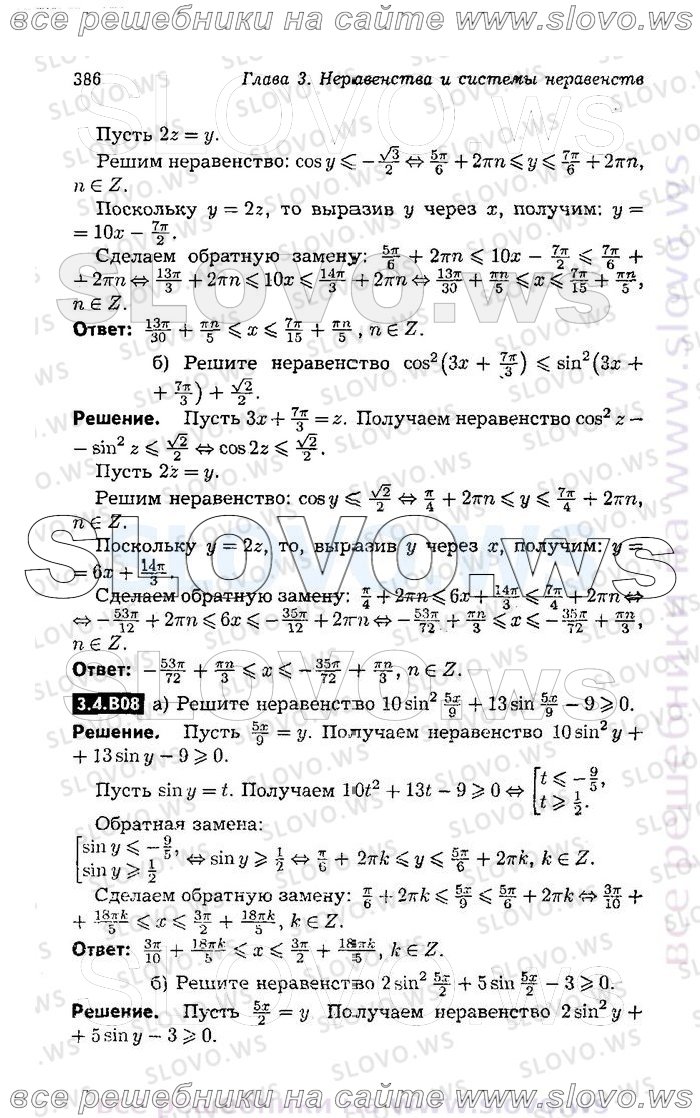 все решебники на сайте www.slovo.ws
386 Глава 3. Неравенства и системы неравенств
Пусть 2z = y.
Решим неравенство: cos y ⩽ −√3/2 ⇔ 5π/6 + 2πn ⩽ y ⩽ 7π/6 + 2πn,
n ∈ Z.
Поскольку y = 2z, то выразив y через x, получим: y =
= 10x − 7π/2.
Сделаем обратную замену: 5π/6 + 2πn ⩽ 10x − 7π/2 ⩽ 7π/6 +
+ 2πn ⇔ 13π/3 + 2πn ⩽ 10x ⩽ 14π/3 + 2πn ⇔ 13π/30 + πn/5 ⩽ x ⩽ 7π/15 + πn/5,
n ∈ Z.
Ответ: 13π/30 + πn/5 ⩽ x ⩽ 7π/15 + πn/5, n ∈ Z.
б) Решите неравенство cos²(3x + 7π/3) ⩽ sin²(3x +
+ 7π/3) + √2/2.
Решение. Пусть 3x + 7π/3 = z. Получаем неравенство cos² z −
− sin² z ⩽ √2/2 ⇔ cos 2z ⩽ √2/2.
Пусть 2z = y.
Решим неравенство: cos y ⩽ √2/2 ⇔ π/4 + 2πn ⩽ y ⩽ 7π/4 + 2πn,
n ∈ Z.
Поскольку y = 2z, то, выразив y через x, получим: y =
= 6x + 14π/3.
Сделаем обратную замену: π/4 + 2πn ⩽ 6x + 14π/3 ⩽ 7π/4 + 2πn ⇔
⇔ −53π/12 + 2πn ⩽ 6x ⩽ −35π/12 + 2πn ⇔ −53π/72 + πn/3 ⩽ x ⩽ −35π/72 + πn/3,
n ∈ Z.
Ответ: −53π/72 + πn/3 ⩽ x ⩽ −35π/72 + πn/3, n ∈ Z.
3.4.B08 а) Решите неравенство 10 sin² 5x/9 + 13 sin 5x/9 − 9 ⩾ 0.
Решение. Пусть 5x/9 = y. Получаем неравенство 10 sin² y +
+ 13 sin y − 9 ⩾ 0.
Пусть sin y = t. Получаем 10t² + 13t − 9 ⩾ 0 ⇔ [t ⩽ −9/5, t ⩾ 1/2.
Обратная замена:
[sin y ⩽ −9/5, sin y ⩾ 1/2 ⇔ sin y ⩾ 1/2 ⇔ π/6 + 2πk ⩽ y ⩽ 5π/6 + 2πk, k ∈ Z.
Сделаем обратную замену: π/6 + 2πk ⩽ 5x/9 ⩽ 5π/6 + 2πk ⇔ 3π/10 +
+ 18πk/5 ⩽ x ⩽ 3π/2 + 18πk/5, k ∈ Z.
Ответ: 3π/10 + 18πk/5 ⩽ x ⩽ 3π/2 + 18πk/5, k ∈ Z.
б) Решите неравенство 2 sin² 5x/2 + 5 sin 5x/2 − 3 ⩾ 0.
Решение. Пусть 5x/2 = y Получаем неравенство 2 sin² y +
+ 5 sin y − 3 ⩾ 0.
все решебники на сайте www.slovo.ws